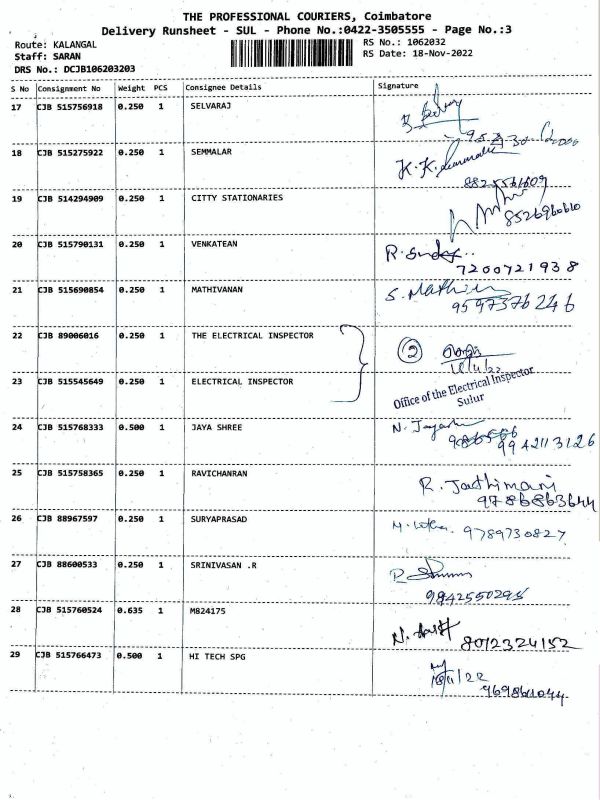 THE PROFESSIONAL COURIERS, Coimbatore
Delivery Runsheet - SUL - Phone No.:0422-3505555 - Page No.:3
Route: KALANGAL
RS No.: 1062032
Staff: SARAN
RS Date: 18-Nov-2022
DRS No.: DCJB106203203
S No Consignment No Weight PCS Consignee Details Signature
17 CJB 515756918 0.250 1 SELVARAJ
18 CJB 515275922 0.250 1 SEMMALAR K.K.
19 CJB 514294909 0.250 1 CITTY STATIONARIES
8526960610
20 CJB 515790131 0.250 1 VENKATEAN
7200721938
21 CJB 515690854 0.250 1 MATHIVANAN S. Mathi
9597376246
22 CJB 89006016 0.250 1 THE ELECTRICAL INSPECTOR 2
23 CJB 515545649 0.250 1 ELECTRICAL INSPECTOR
Office of the Electrical Inspector
Sulur
24 CJB 515768333 0.500 1 JAYA SHREE
9942113126
25 CJB 515758365 0.250 1 RAVICHANRAN
R. Jothimani
9786863644
26 CJB 88967597 0.250 1 SURYAPRASAD
9789730827
27 CJB 88600533 0.250 1 SRINIVASAN .R
9842550295
28 CJB 515760524 0.635 1 M824175
8012324152
29 CJB 515766473 0.500 1 HI TECH SPG
18/11/22